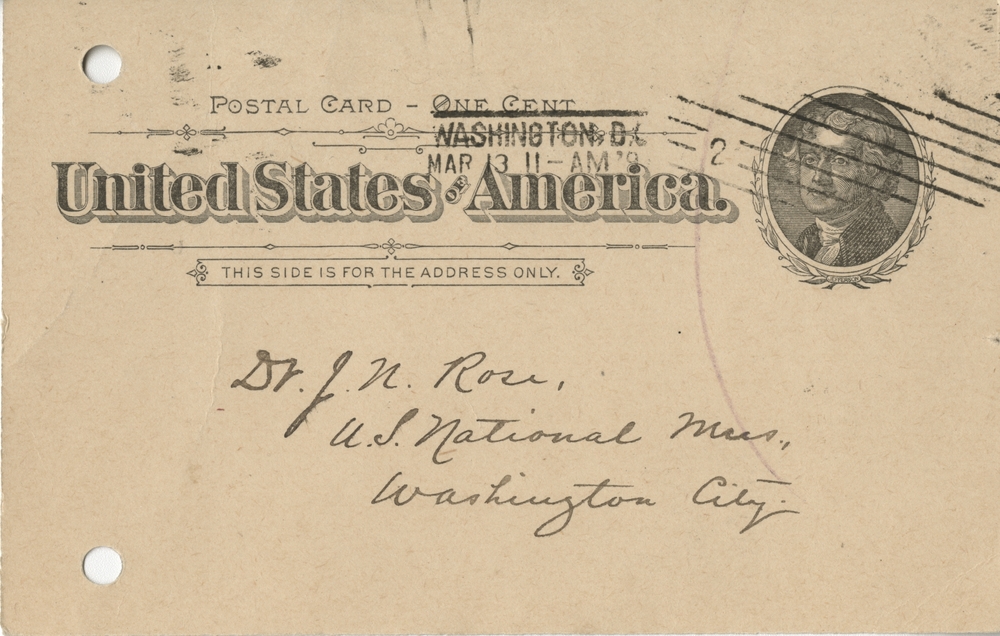 POSTAL CARD – ONE CENT
WASHINGTON, D.C.
MAR 13 11–AM '9
2
United States of America.
THIS SIDE IS FOR THE ADDRESS ONLY.
JEFFERSON
Dr. J. N. Rose,
U.S. National Mus.,
Washington City.